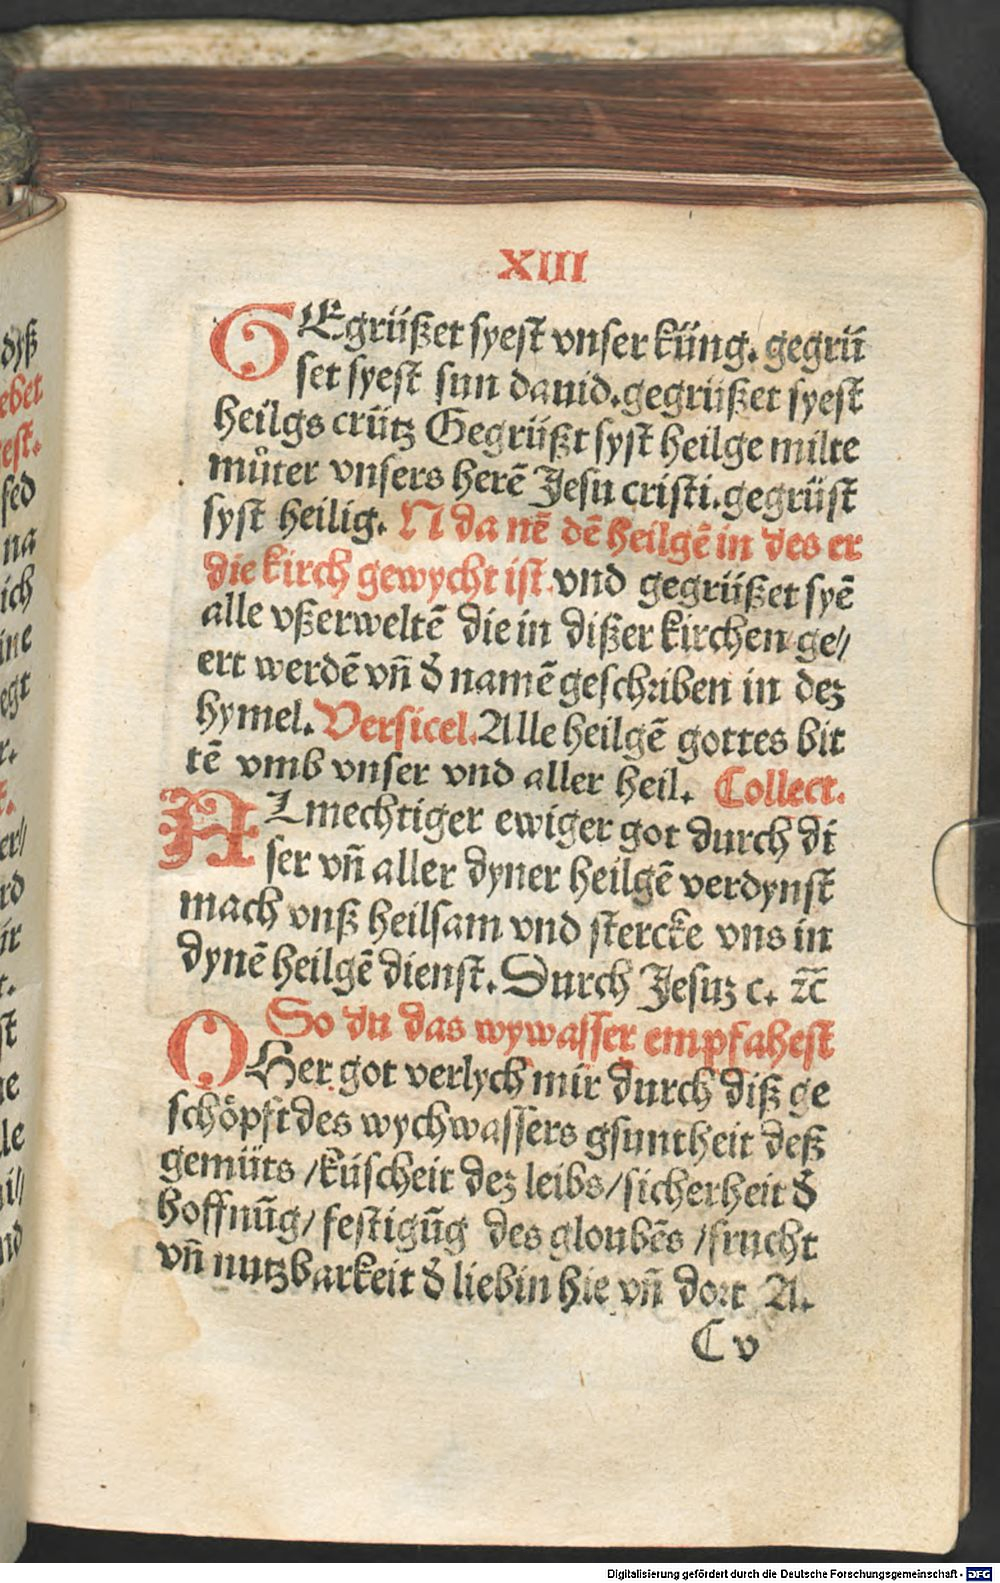 XIII
GEgrüßet syest vnser küng. gegrü
set syest sun dauid. gegrüßet syest
heilgs crütz Gegrüßt syst heilge milte
můter vnsers herē Jesu cristi. gegrüst
syst heilig. N da nē dē heilgē in des er
die kirch gewycht ist. vnd gegrüßet syē
alle vßerweltē die in dißer kirchen ge//
ert werdē vn̄ d̄ namē geschꝛiben in dez
hymel. Versicel. Alle heilgē gottes bit
tē vmb vnser vnd aller heil. Collect.
ALmechtiger ewiger got durch di
ser vn̄ aller dyner heilgē verdynst
mach vnß heilsam vnd stercke vns in
dynē heilgē dienst. Durch Jesuz c. ⁊c̄
So du das wywasser empfahest
OHer got verlych mir durch diß ge
schöpft des wychwassers gsuntheit deß
gemüts / küscheit dez leibs / sicherheit d̄
hoffnūg / festigūg des gloubēs / frucht
vn̄ nutzbarkeit d̄ liebin hie vn̄ doꝛt A.
C v
dyß
ebet
est.
sed
na
ich
ine
egt
r.
t.
er/
rd
ir
t.
st
ge
lle
i//
nd
Digitalisierung gefördert durch die Deutsche Forschungsgemeinschaft - DFG